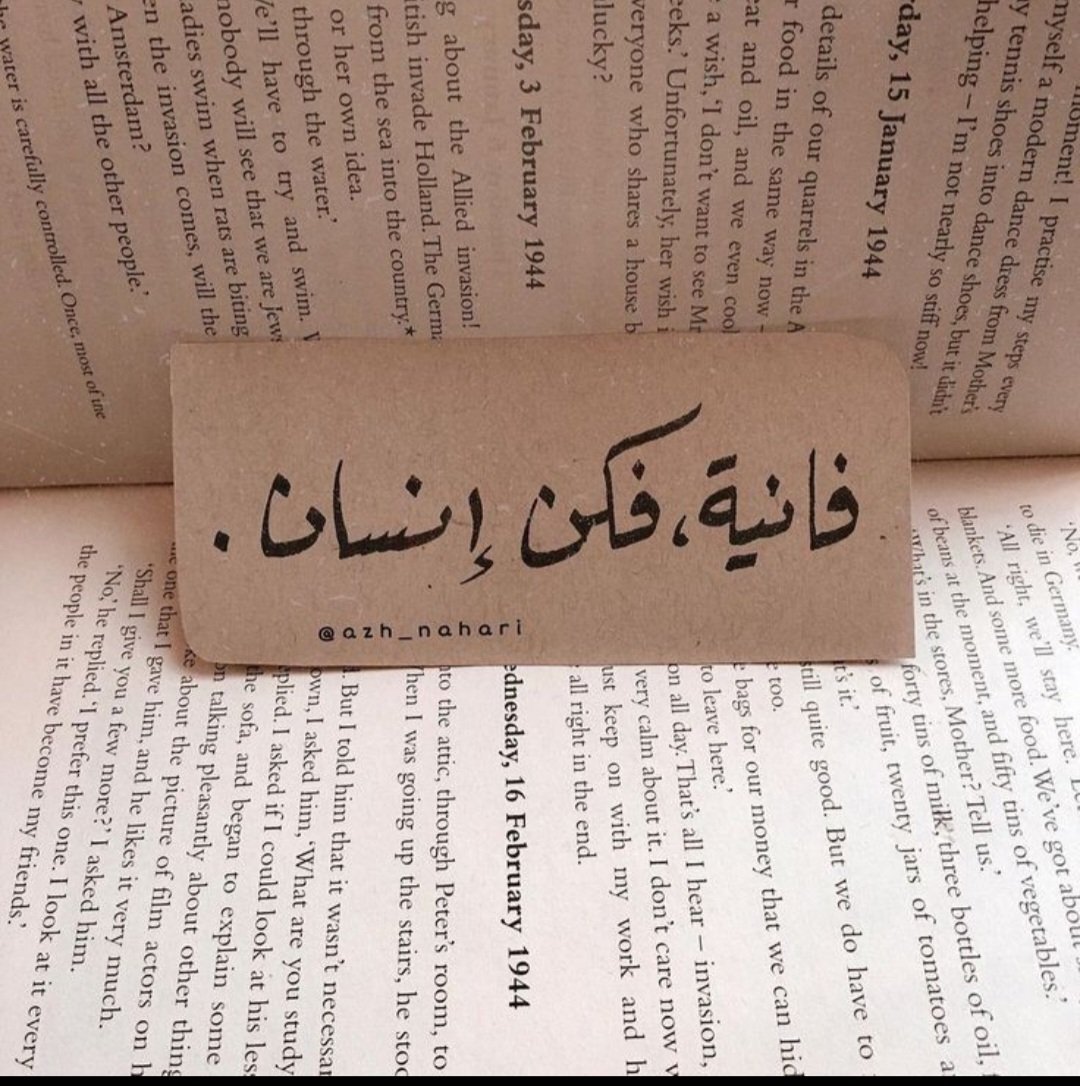 moment! I practise my steps every
a modern dance dress from Mother's
tennis shoes into dance shoes, but it didn't
helping – I'm not nearly so stiff now!
15 January 1944
details of our quarrels in the
food in the same way now –
and oil, and we even
a wish, 'I don't want to see
Unfortunately, her wish
who shares a house
lucky?
3 February 1944
about the Allied invasion!
invade Holland. The
from the sea into the country.*
or her own idea.
through the water.'
have to try and swim.
nobody will see that we are Jews
swim when rats are biting
the invasion comes, will the
Amsterdam?
with all the other people.'
water is carefully controlled. Once, most of the
فانية، فكن إنسان .
@azh_nahari
'No,
to die in Germany.
'All right, we'll stay here.
blankets. And some more food. We've got about
of beans at the moment, and fifty tins of vegetables.'
'What's in the stores, Mother? Tell us.'
forty tins of milk, three bottles of oil,
of fruit, twenty jars of tomatoes
it.'
still quite good. But we do have to
too.
bags for our money that we can
to leave here.'
all day. That's all I hear – invasion,
very calm about it. I don't care now
keep on with my work and
all right in the end.
16 February 1944
the attic, through Peter's room, to
I was going up the stairs, he
But I told him that it wasn't
I asked him, 'What are you
I asked if I could look at his
the sofa, and began to explain some
talking pleasantly about other
about the picture of film actors on
one that I gave him, and he likes it very much.
'Shall I give you a few more?' I asked him.
'No,' he replied. 'I prefer this one. I look at it every
the people in it have become my friends.'